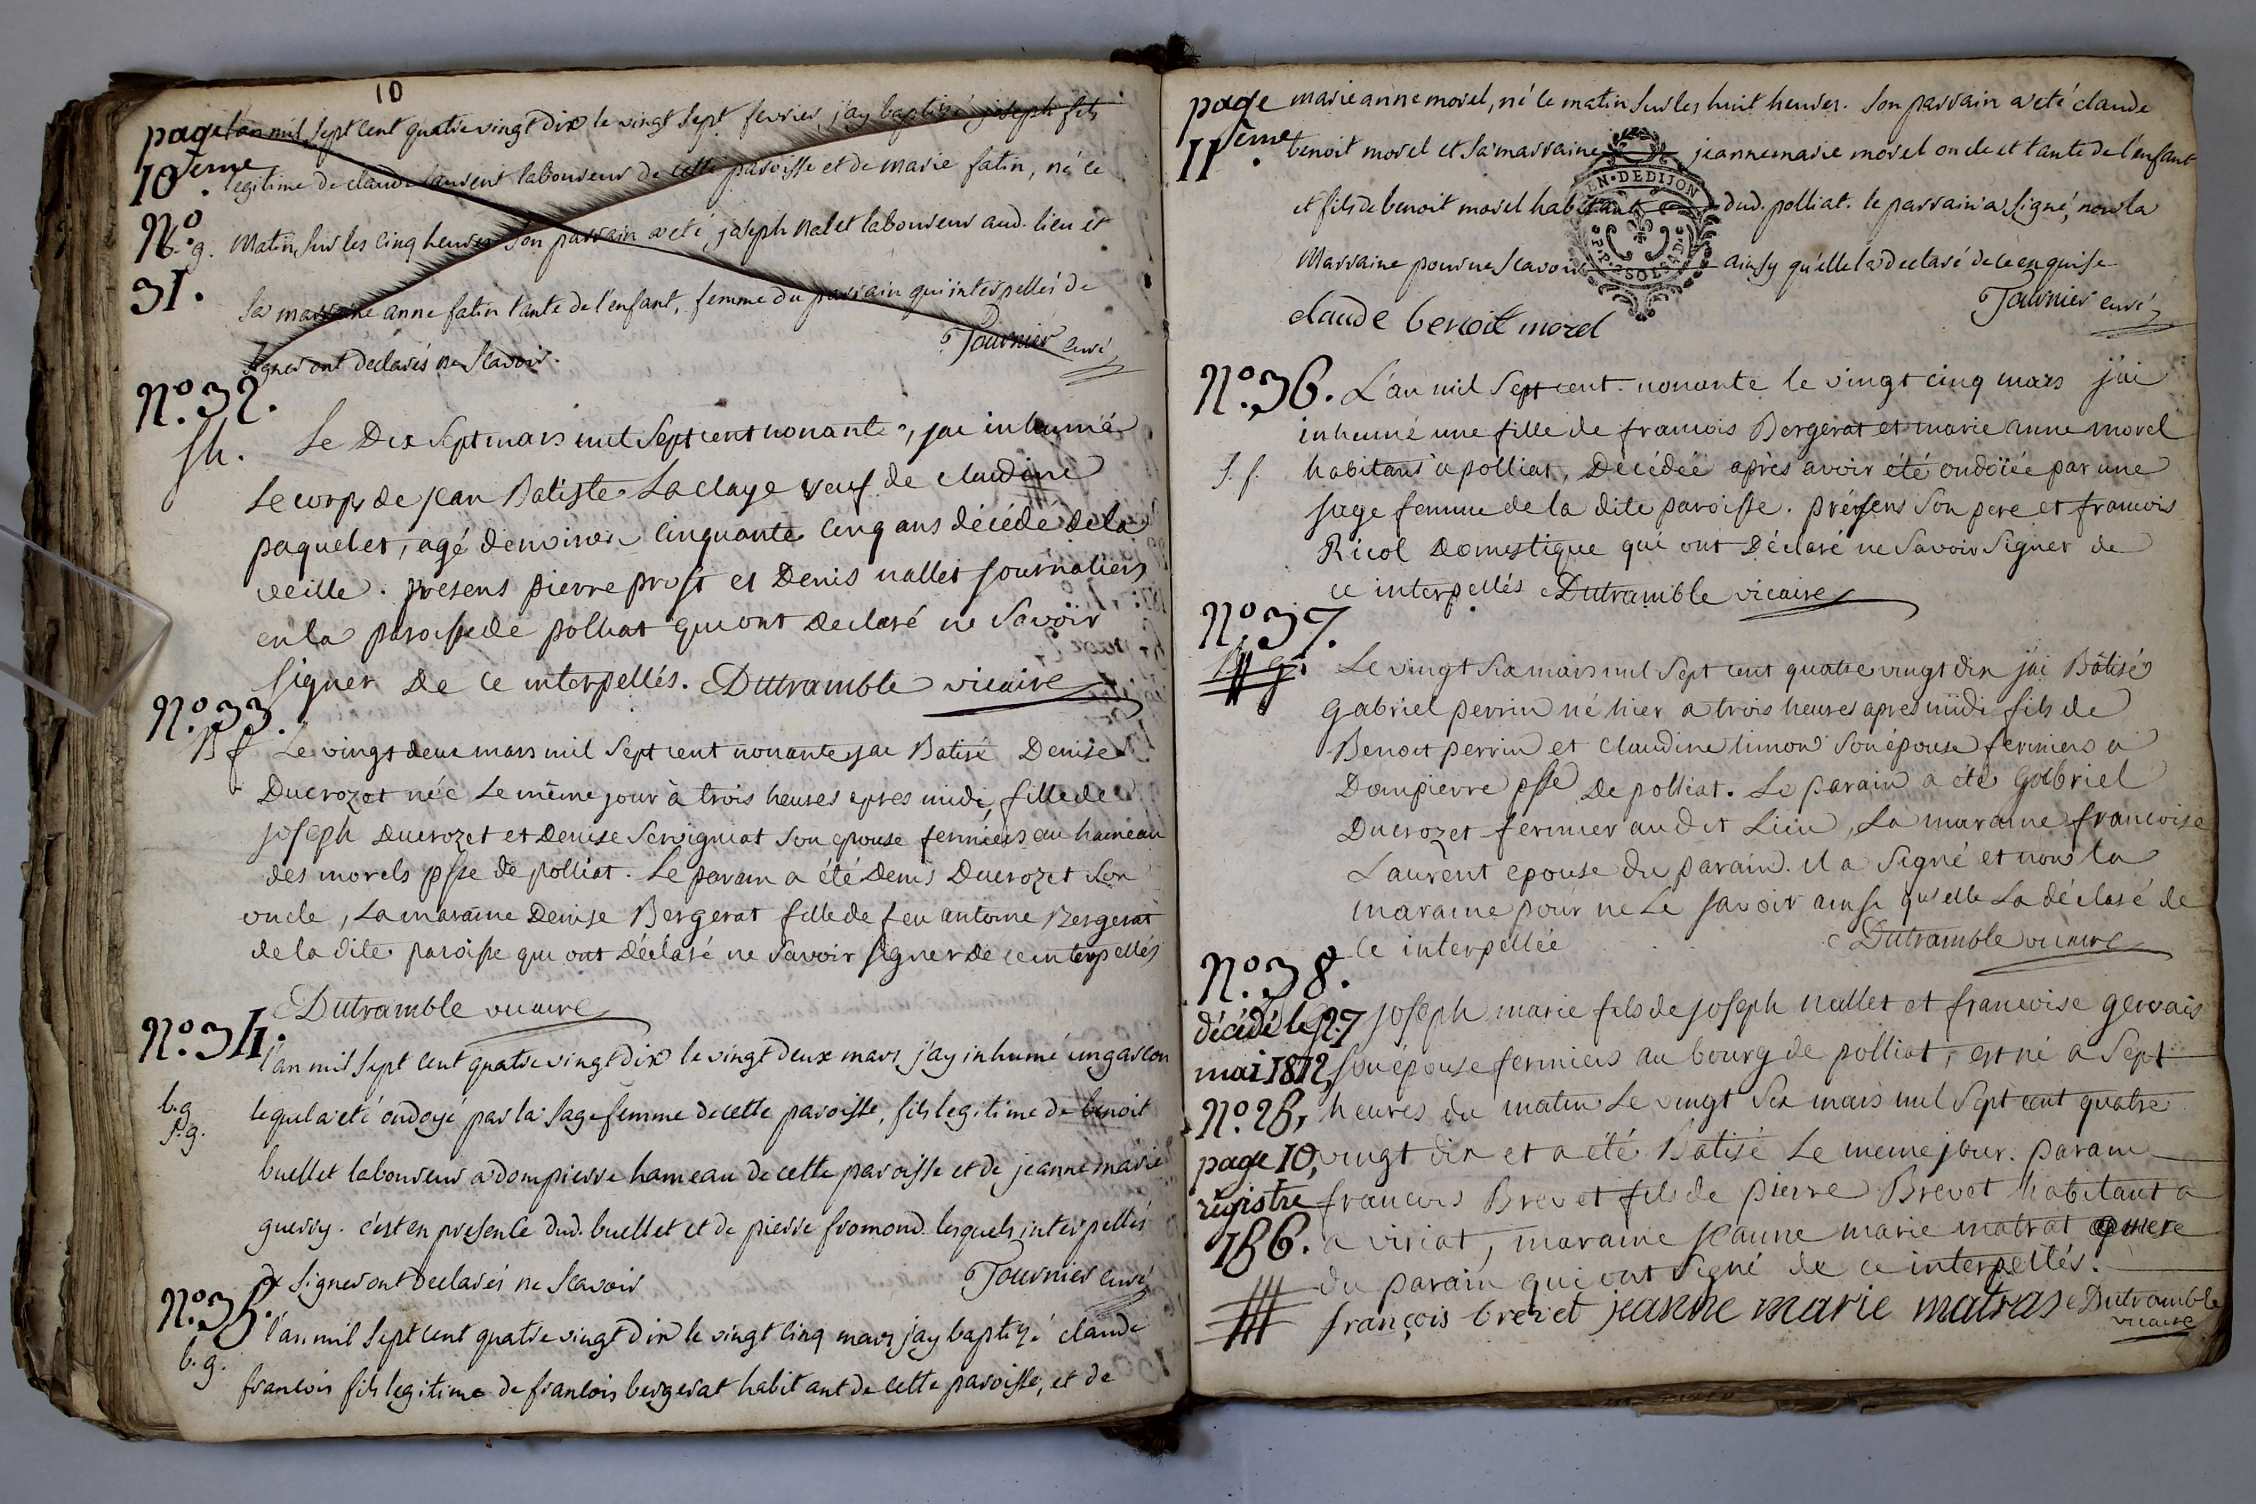 10
page l'an mil sept cent quatre vingt dix le vingt sept fevrier, j'ay baptizé joseph fils
10ème legitime de claude laurent laboureur de cette paroisse et de marie fatin, né ce
N.o b. g. matin sur les cinq heures son parrain a eté joseph nalet laboureur aud. lieu et
31. sa marraine anne fatin tante de l'enfant, femme du parrain qui interpellés de
signer ont declarés ne scavoir. Tournier curé
N.o 32.
sh. Le Dix sept mars mil sept cent nonante, jai inhumé
Le corps de jean Batiste Laclaye veuf de claudine
paquelet, agé denviron cinquante cinq ans décédé de la
veille. presens pierre prost et Denis nallet journaliers
en la paroisse de polliat qui ont declaré ne savoir
signer De ce interpellés. Dutramble vicaire
N.o 33.
B f Le vingt deux mars mil sept cent nonante jai Batisé Denise
Ducrozet née Le même jour à trois heures apres midi, fille de
joseph Ducrozet et Denise Servignat son epouse fermiers au hameau
des morels psse de polliat. Le parain a été Denis Ducrozet son
oncle, La maraine Denise Bergerat fille de feu antoine Bergerat
de la dite paroisse qui ont déclaré ne savoir signer de ce interpellés
Dutramble vicaire
N.o 34.
l'an mil sept cent quatre vingt dix le vingt deux mars j'ay inhumé un garcon
b. g. lequel a eté ondoyé par la sage femme de cette paroisse, fils legitime de benoit
s. g.
buellet laboureur a dompierre hameau de cette paroisse et de jeanne marie
guerry. c'est en presence dud. buellet et de pierre fromond lesquels interpellés
de signer ont declarés ne scavoir Tournier curé
N.o 35.
l'an mil sept cent quatre vingt dix le vingt cinq mars j'ay baptizé claude
b. g. francois fils legitime de francois bergerat habitant de cette paroisse, et de
page marie anne morel, né le matin sur les huit heures. son parrain a eté claude
11ème benoit morel et sa marraine jeanne marie morel oncle et tante de l'enfant
et fils de benoit morel habitant dud. polliat. le parrain a signé, non la
marraine pour ne scavoir ainsy qu'elle la declaré de ce enquise
EN. DE DIJON
claude benoit morel Tournier curé
N.o 36. L'an mil sept cent nonante le vingt cinq mars j'ai
inhumé une fille de francois Bergerat et marie anne morel
s. f. habitans a polliat, Décédée après avoir été ondoïée par une
sage femme de la dite paroisse. présens son pere et francois
Ricol Domestique qui ont Déclaré ne savoir signer de
ce interpellés Dutramble vicaire
N.o 37.
Le vingt six mars mil sept cent quatre vingt dix j'ai Bâtisé
gabriel perrin né hier a trois heures apres midi fils de
Benoit perrin et claudine limon son épouse fermiers a
Dompierre psse De polliat. Le parain a été gabriel
Ducrozet fermier au dit Lieu, La maraine francoise
Laurent epouse du parain. il a signé et non la
maraine pour ne Le savoir ainsi qu'elle La déclaré de
ce interpellée Dutramble vicaire
N.o 38.
décédé le 27 joseph marie fils de joseph nallet et francoise gervais
mai 1812, son épouse fermiers au bourg de polliat, est né a sept
N.o 28, heures du matin Le vingt six mars mil sept cent quatre
page 10, vingt dix et a été Batisé Le meme jour. parain
régistre francois Brevet fils de pierre Brevet habitant a
186. a viriat, maraine jeanne marie matrat
du parain qui ont signé de ce interpellés.
françois brevet jeanne marie matras Dutramble
vicaire